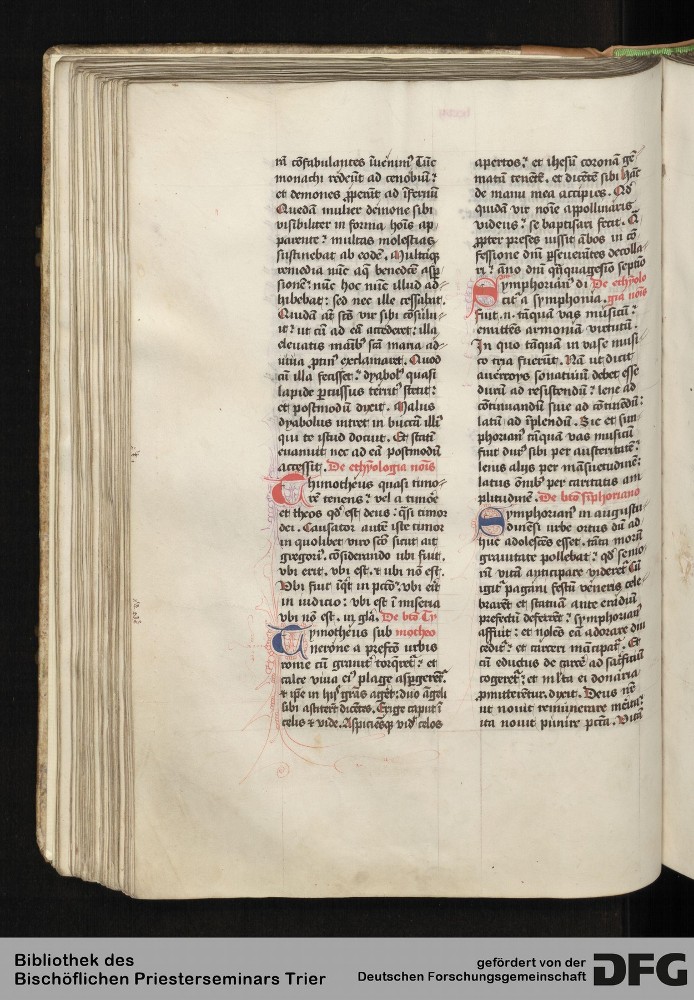 rā cōfabulantes īuenim᷒ Tūc
monachi redeūt ad cenobiū ⁊
et demones ꝓperāt ad īfernū
Quedā mulier demone sibi
visibiliter in forma hoīs ap
parente ⁊ multas molestias
sustinebat ab eodē. Multaqꝫ
remedia nūc aq̄ benedc̄e asꝑ
sione ⁊ nūc hoc nūc illud ad
hibebat : sed nec ille cessabat.
Quidā aūt sc̄s vir sibi cōsului
it ⁊ ut cū ad eā accederet : illa
eleuatis manib᷒ scā maria ad
iuua ꝓtin᷒ exclamaret. Quod
cū illa fecisset ⁊ dyabol᷒ quasi
lapide ꝑcussus territ᷒ stetit :
et postmodū dixit. Malus
dyabolus intret in buccā illi᷒
qui te istud docuit. Et statī
euanuit nec ad eā postmodū
accessit. De ethyologia noīs
Thimotheus quasi timo
rē tenens ⁊ vel a timōe
et theos qd̄ est deus : q̄si timor
dei. Causatur autē iste timor
in quolibet viro scō sicut ait
gregori᷒. cōsiderando ubi fuit.
vbi erit. vbi est. ⁊ ubi nō est.
Vbi fuit īqt in pctō. vbi erit
in iudicio : vbi est ī miseria
vbi nō est. in glā. De btō Ty
Tymotheus sub motheo
nerone a prefcō urbis
rome cū grauit᷒ torq̄ret᷒ ⁊ et
calce viua ei᷒ plage aspgeret᷒
⁊ ipē in hijs grās agēt : duo āgeli
sibi astiterūt dicētes. Erige caput ī
celis ⁊ vide. Aspiciēsqꝫ vidꝫ celos
apertos ⁊ et ihesū coronā gē
matā tenētē. et dicētē sibi hāc
de manu mea accipies. Qd̄
quidā vir noīe appollinaris
videns ⁊ se baptisari fecit. Q̄
ꝓpter preses iussit ābos in cō
fessione dnī ꝑseuerātes decolla
ri ⁊ āno dnī qnquagesīo septīo
Symphorian᷒ di De ethyolo
cit᷒ a symphonia. gia noīs
fuit .n. tāquā vas musicū ⁊
emittēs armoniā virtutū.
In quo tāquā in vase musi
co tria fuerūt. Nā ut dicit
auerroys sonatiuū debet esse
durū ad resistendū ⁊ lene ad
cōtinuandū siue ad cōtinēdū :
latū ad īplendū. Sic et sim
phorian᷒ tāquā vas musicū
fuit dur᷒ sibi per austeritatē :
lenis alijs per māsuetudinē :
latus oīnib᷒ per caritatis am
plitudinē. De btō sīphoriano
Symphorian᷒ in augustu
dunēsi urbe ortus dū ad
huc adolescēs esset. tāta morū
grauitate pollebat ⁊ qd̄ senio
rū vitā anticipare videret᷒ Cū
igit᷒ pagani festū veneris cele
brarēt et statuā ante eraclīū
prefectū deferrēt ⁊ symphorian᷒
affuit : et nolēs eā adorare diu
cedit᷒ ⁊ et carceri mācipat᷒. Et
cū eductus de carcē ad sacrificiū
cogeret᷒ ⁊ et mlta ei donaria
ꝓmitterentur. dixit. Deus nr̄
ut nouit remunerare merita :
ita nouit punire pctā. Vitā
Bibliothek des
Bischöflichen Priesterseminars Trier
gefördert von der
Deutschen Forschungsgemeinschaft
DFG